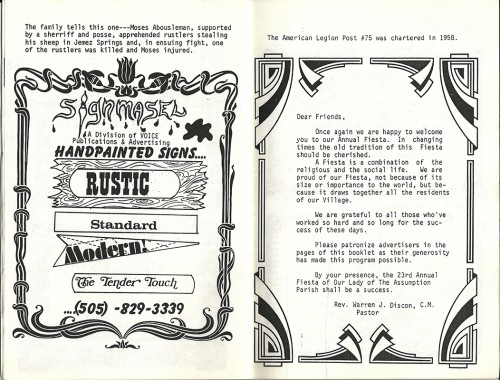 The family tells this one---Moses Abousleman, supported
by a sherriff and posse, apprehended rustlers stealing
his sheep in Jemez Springs and, in ensuing fight, one
of the rustlers was killed and Moses injured.
Signmasel
A Division of VOICE
Publications & Advertising
HANDPAINTED SIGNS....
RUSTIC
Standard
Modern!
The Tender Touch
...(505) -829-3339
The American Legion Post #75 was chartered in 1958.
Dear Friends,
Once again we are happy to welcome
you to our Annual Fiesta. In changing
times the old tradition of this Fiesta
should be cherished.
A Fiesta is a combination of the
religious and the social life. We are
proud of our Fiesta, not because of its
size or importance to the world, but be-
cause it draws together all the residents
of our Village.
We are grateful to all those who've
worked so hard and so long for the suc-
cess of these days.
Please patronize advertisers in the
pages of this booklet as their generosity
has made this program possible.
By your presence, the 23rd Annual
Fiesta of Our Lady of The Assumption
Parish shall be a success.
Rev. Warren J. Discon, C.M.
Pastor